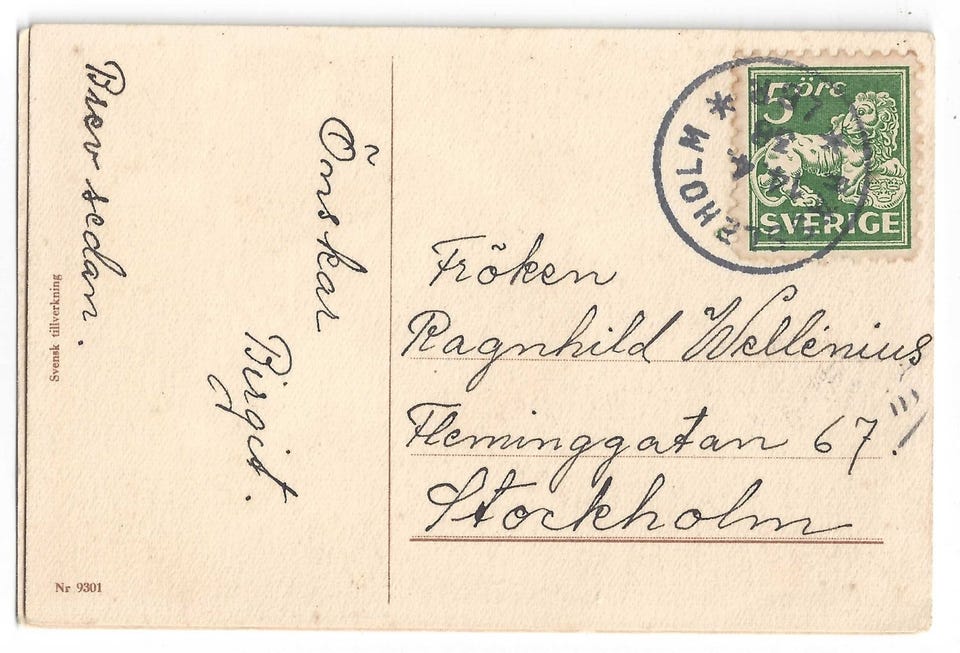 Brev sedan.
Önskar
Birgit.
Svensk tillverkning
Nr 9301
5 öre
SVERIGE
Fröken
Ragnhild Wellénius
Fleminggatan 67.
Stockholm